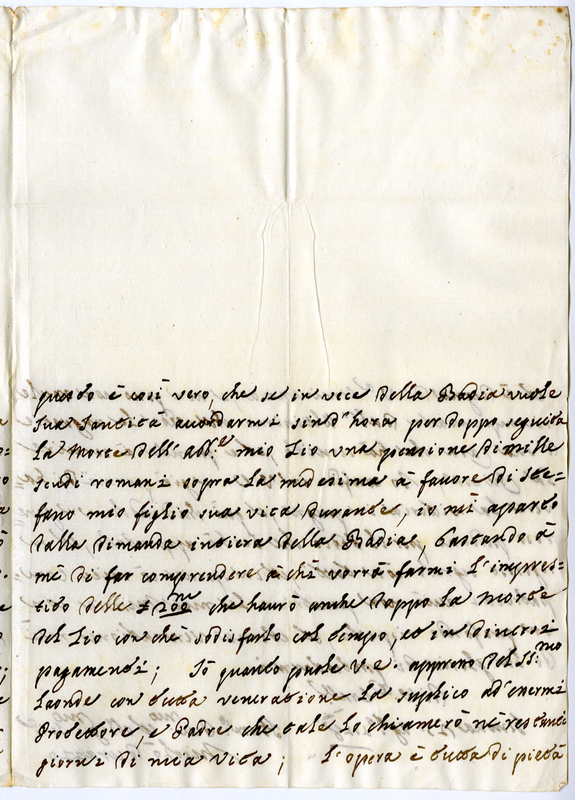 questo è così vero, che se in vece della Badia vuole
Sua Santità accordarmi sin d'hora per doppo seguita
la Morte dell' Abb.e mio Zio una pensione di mille
scudi romani sopra la medesima à favore di Ste=
fano mio figlio sua vita durante, io mi apparto
dalla dimanda intiera della Badia, bastando à
mè di far comprendere à chi vorrà farmi l'impres=
tito delle £ 200 m che haurò anche doppo la Morte
del Zio con che sodisfarlo col tempo, et in diversi
pagamenti; Sò quanto puole V.E. appreso del SS.mo
laonde con tutta veneratione la suplico ad' essermi
Protettore, e Padre che tale lo chiamerò ne restanti
giorni di mia vita; L'opera è tutta di pietà